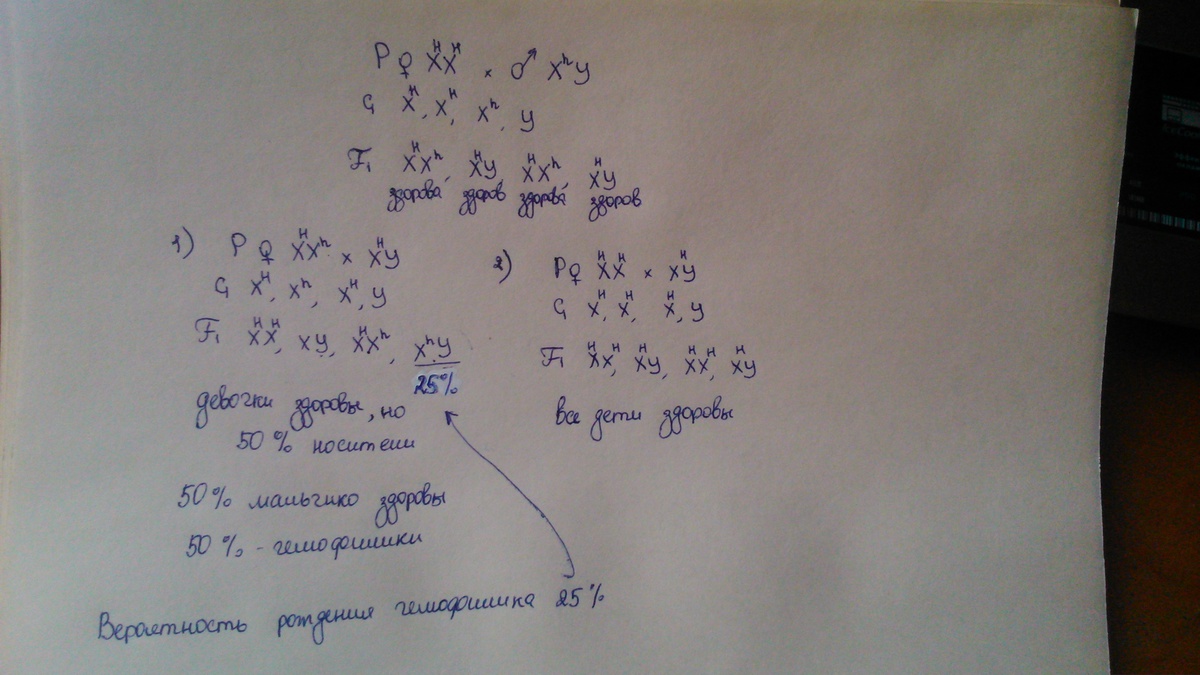 P ♀ XᴴXᴴ × ♂ XʰY
G Xᴴ, Xᴴ, Xʰ, Y
F₁ XᴴXʰ, XᴴY, XᴴXʰ, XᴴY
здорова здоров здорова здоров
1) P ♀ XᴴXʰ × XᴴY
G Xᴴ, Xʰ, Xᴴ, Y
F₁ XᴴXᴴ, XY, XᴴXʰ, XʰY
25%
девочки здоровы, но
50% носители
50% мальчико здоровы
50% - гемофилики
2) P♀ XᴴXᴴ × XᴴY
G Xᴴ, Xᴴ, Xᴴ, Y
F₁ XᴴXᴴ, XᴴY, XᴴXᴴ, XᴴY
все дети здоровы
Вероятность рождения гемофилика 25%